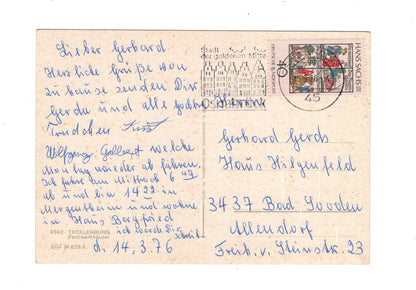 Lieber Gerhard
Herzliche Grüße von
zu hause senden Dir
Gerda und alle
Trudchen
Wolfgang welche
Montag wieder ab fahren.
Ich fahre am Mittwoch 6 49
ab und bin 14 22 in
Mergentheim und wohne
in Haus Bergfried
ich werde Dir
schreib.
d. 14.3.76
4542 TECKLENBURG
Fachwerkhäuser
Stadt
der goldenen Mitte
Osnabrück
45
DEUTSCHE BUNDESPOST
40
HANS SACHS
Gerhard Gerds
Haus Hilgenfeld
3437 Bad Sooden
Allendorf
Freih. v. Steinstr. 23